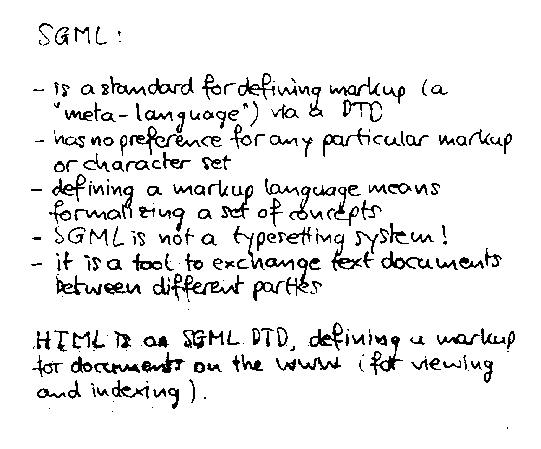 SGML:
- is a standard for defining markup (a
"meta-language") via a DTD
- has no preference for any particular markup
or character set
- defining a markup language means
formalizing a set of concepts
- SGML is not a typesetting system!
- it is a tool to exchange text documents
between different parties
HTML is an SGML DTD, defining a markup
for documents on the WWW (for viewing
and indexing).